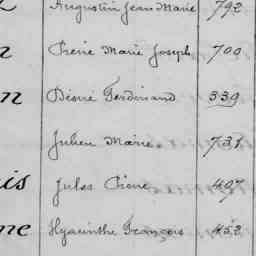 Augustin Jean Marie 792
Pierre Marie Joseph 700
Désiré Ferdinand 339
Julien Marie 731
is Jules Pierre 497
ne Hyacinthe François 452